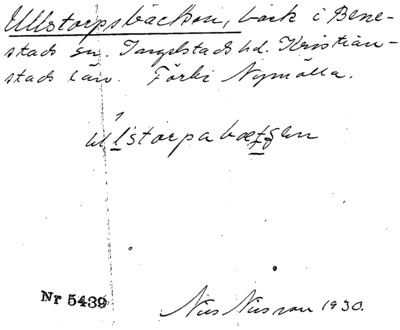 Ullstorpsbäcken, bäck i Bene-
stads sn. Ingelstads hd. Kristian-
stads län. Förbi Nymölla.
Nr 5439
Nils Nilsson 1930.